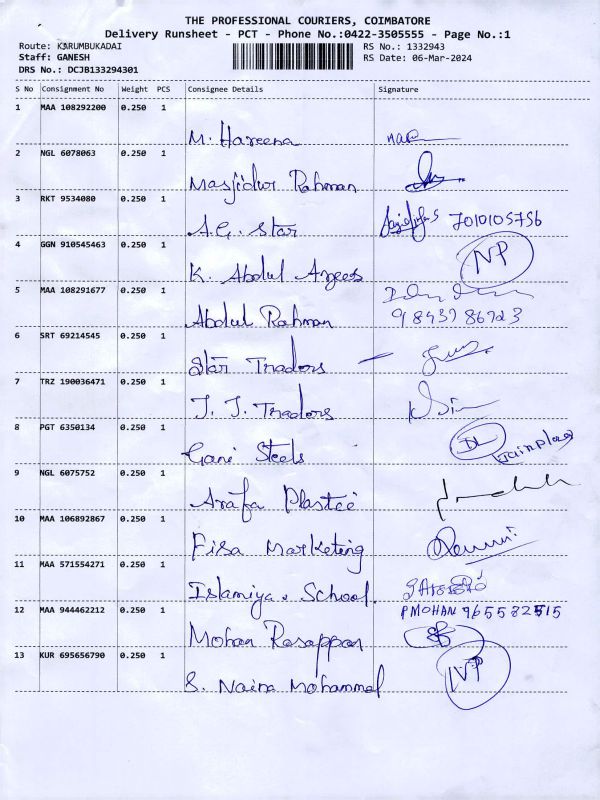 THE PROFESSIONAL COURIERS, COIMBATORE
Delivery Runsheet - PCT - Phone No.:0422-3505555 - Page No.:1
Route: KARUMBUKADAI RS No.: 1332943
Staff: GANESH RS Date: 06-Mar-2024
DRS No.: DCJB133294301
S No Consignment No Weight PCS Consignee Details Signature
1 MAA 108292200 0.250 1
M. Hareena
2 NGL 6078063 0.250 1
Masjidur Rahman
3 RKT 9534080 0.250 1
A.G. Star 7010105756
4 GGN 910545463 0.250 1 NP
K. Abdul Azees
5 MAA 108291677 0.250 1
Abdul Rahman 9843786723
6 SRT 69214545 0.250 1
Star Tradors
7 TRZ 190036471 0.250 1
J. J. Tradors
8 PGT 6350134 0.250 1 DL
Gani Steels
9 NGL 6075752 0.250 1
Arafa Plastic
10 MAA 106892867 0.250 1
Fisa Marketing
11 MAA 571554271 0.250 1
Islamiya School.
12 MAA 944462212 0.250 1 P MOHAN 9655825515
Mohan Rasappan
13 KUR 695656790 0.250 1 NP
S. Naina Mohammed